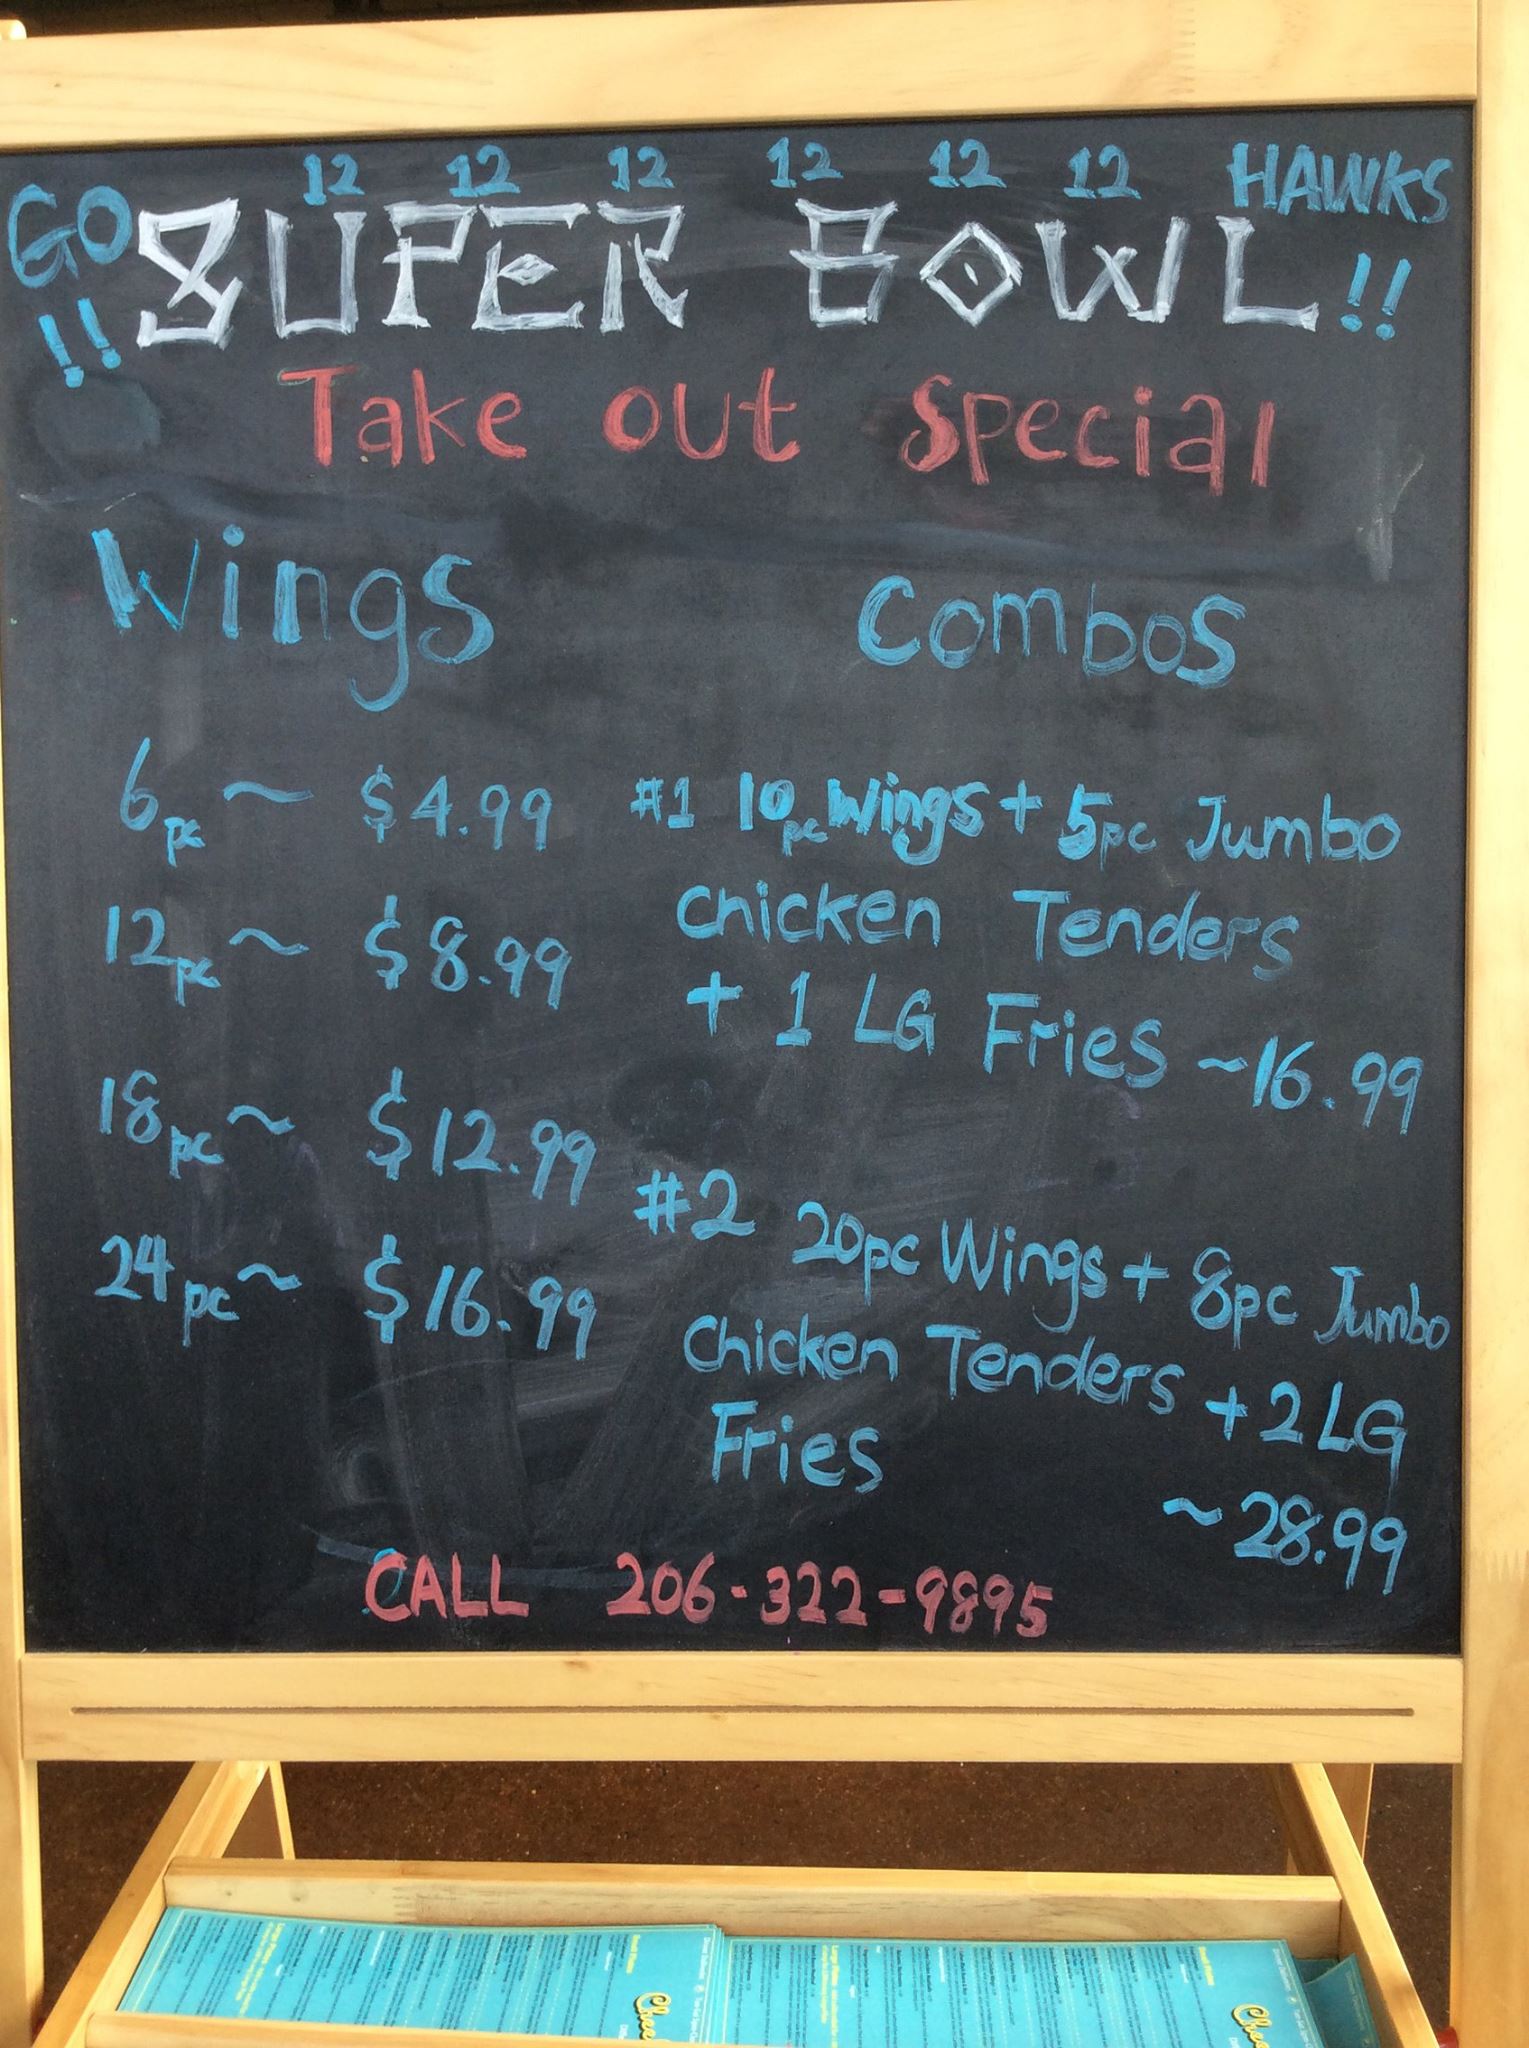 12 12 12 12 12 12
GO SUPER BOWL HAWKS
!! !!
Take out Special
Wings
6pc ~ $4.99
12pc ~ $8.99
18pc ~ $12.99
24pc ~ $16.99
Combos
#1 10pc Wings + 5pc Jumbo
Chicken Tenders
+ 1 LG Fries ~16.99
#2 20pc Wings + 8pc Jumbo
Chicken Tenders + 2 LG
Fries
~ 28.99
CALL 206-322-9895